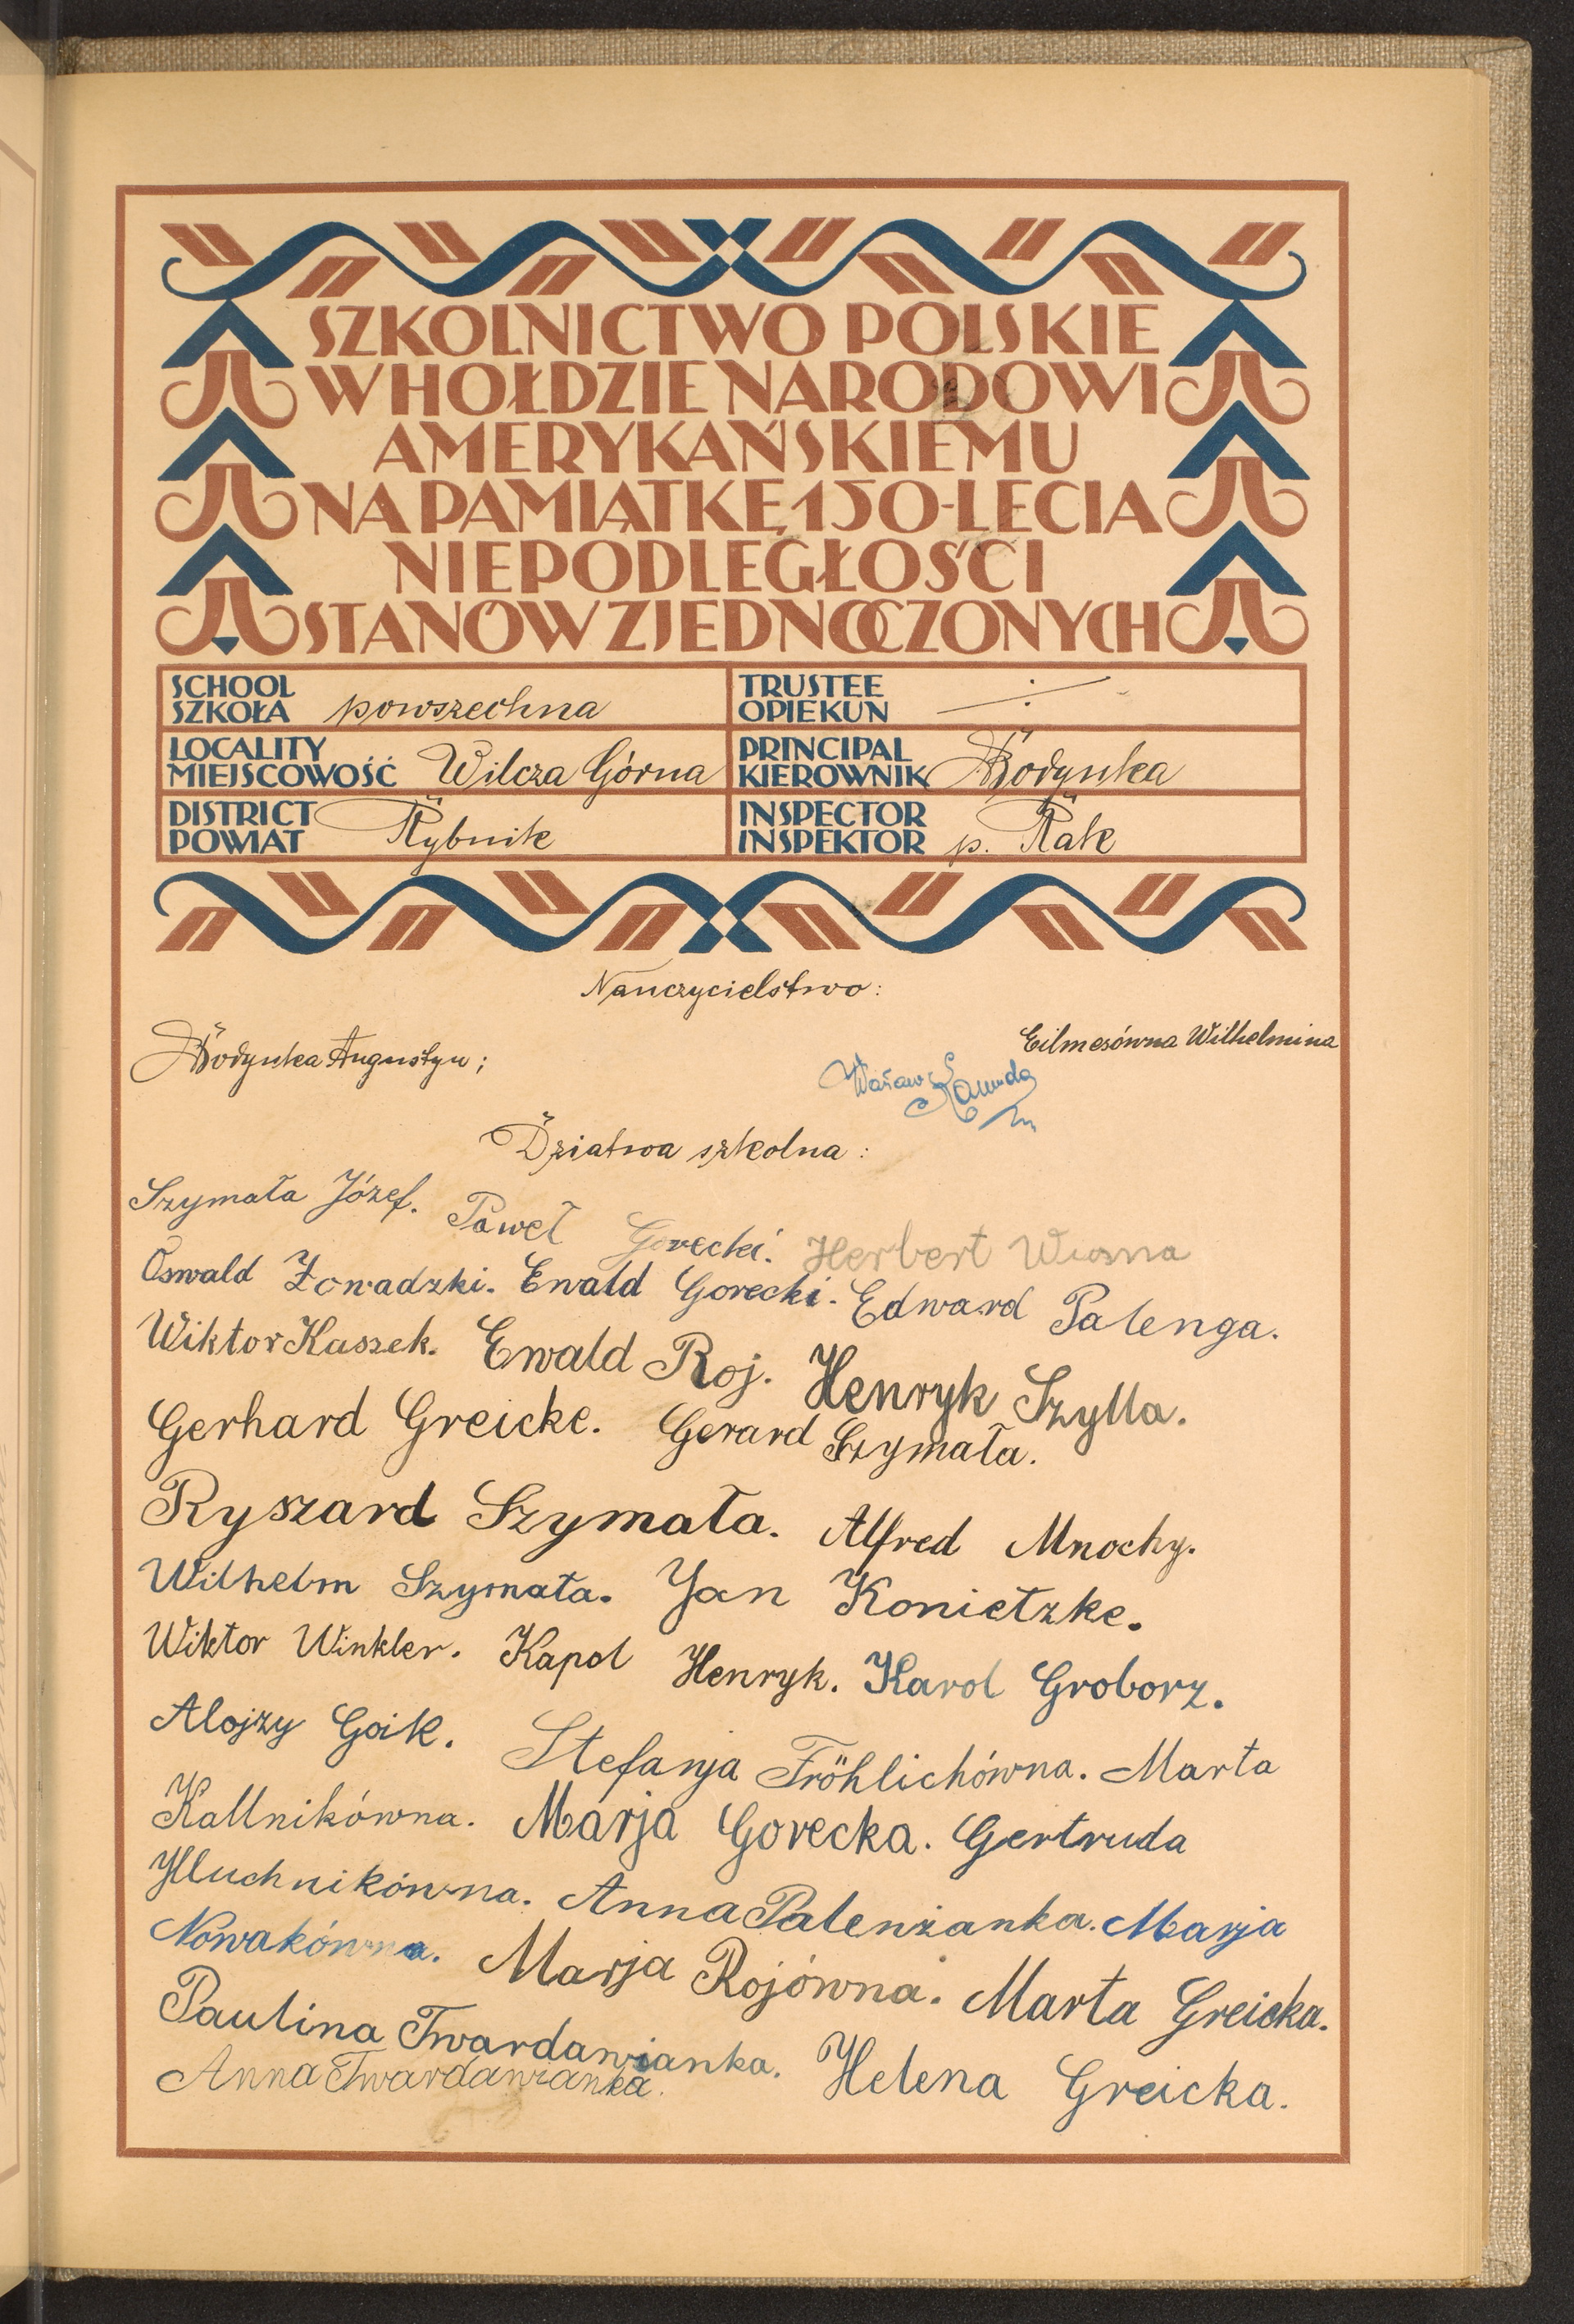 SZKOLNICTWO POLSKIE
W HOŁDZIE NARODOWI
AMERYKAŃSKIEMU
NA PAMIĄTKĘ 150-LECIA
NIEPODLEGŁOŚCI
STANÓW ZJEDNOCZONYCH
SCHOOL
SZKOŁA powszechna
TRUSTEE
OPIEKUN
LOCALITY
MIEJSCOWOŚĆ Wilcza Górna
PRINCIPAL
KIEROWNIK Bodynka
DISTRICT
POWIAT Rybnik
INSPECTOR
INSPEKTOR p. Rak
Nauczycielstwo:
Bodynka Augustyn;
Eilmesówna Wilhelmina
Dziatwa szkolna:
Szymała Józef. Paweł Gorecki. Herbert Wiosna
Oswald Zowadzki. Ewald Gorecki. Edward Palenga.
Wiktor Kaszek. Ewald Roj. Henryk Szylla.
Gerhard Greicke. Gerard Szymała.
Ryszard Szymała. Alfred Mnochy.
Wilhelm Szymała. Jan Konietzke.
Wiktor Winkler. Kapol Henryk. Karol Groborz.
Alojzy Goik. Stefanja Fröhlichówna. Marta
Kallnikówna. Marja Gorecka. Gertruda
Hluchnikówna. Anna Palenżanka. Marja
Nowakówna. Marja Rojówna. Marta Greicka.
Paulina Twardawianka. Helena Greicka.
Anna Twardawianka.